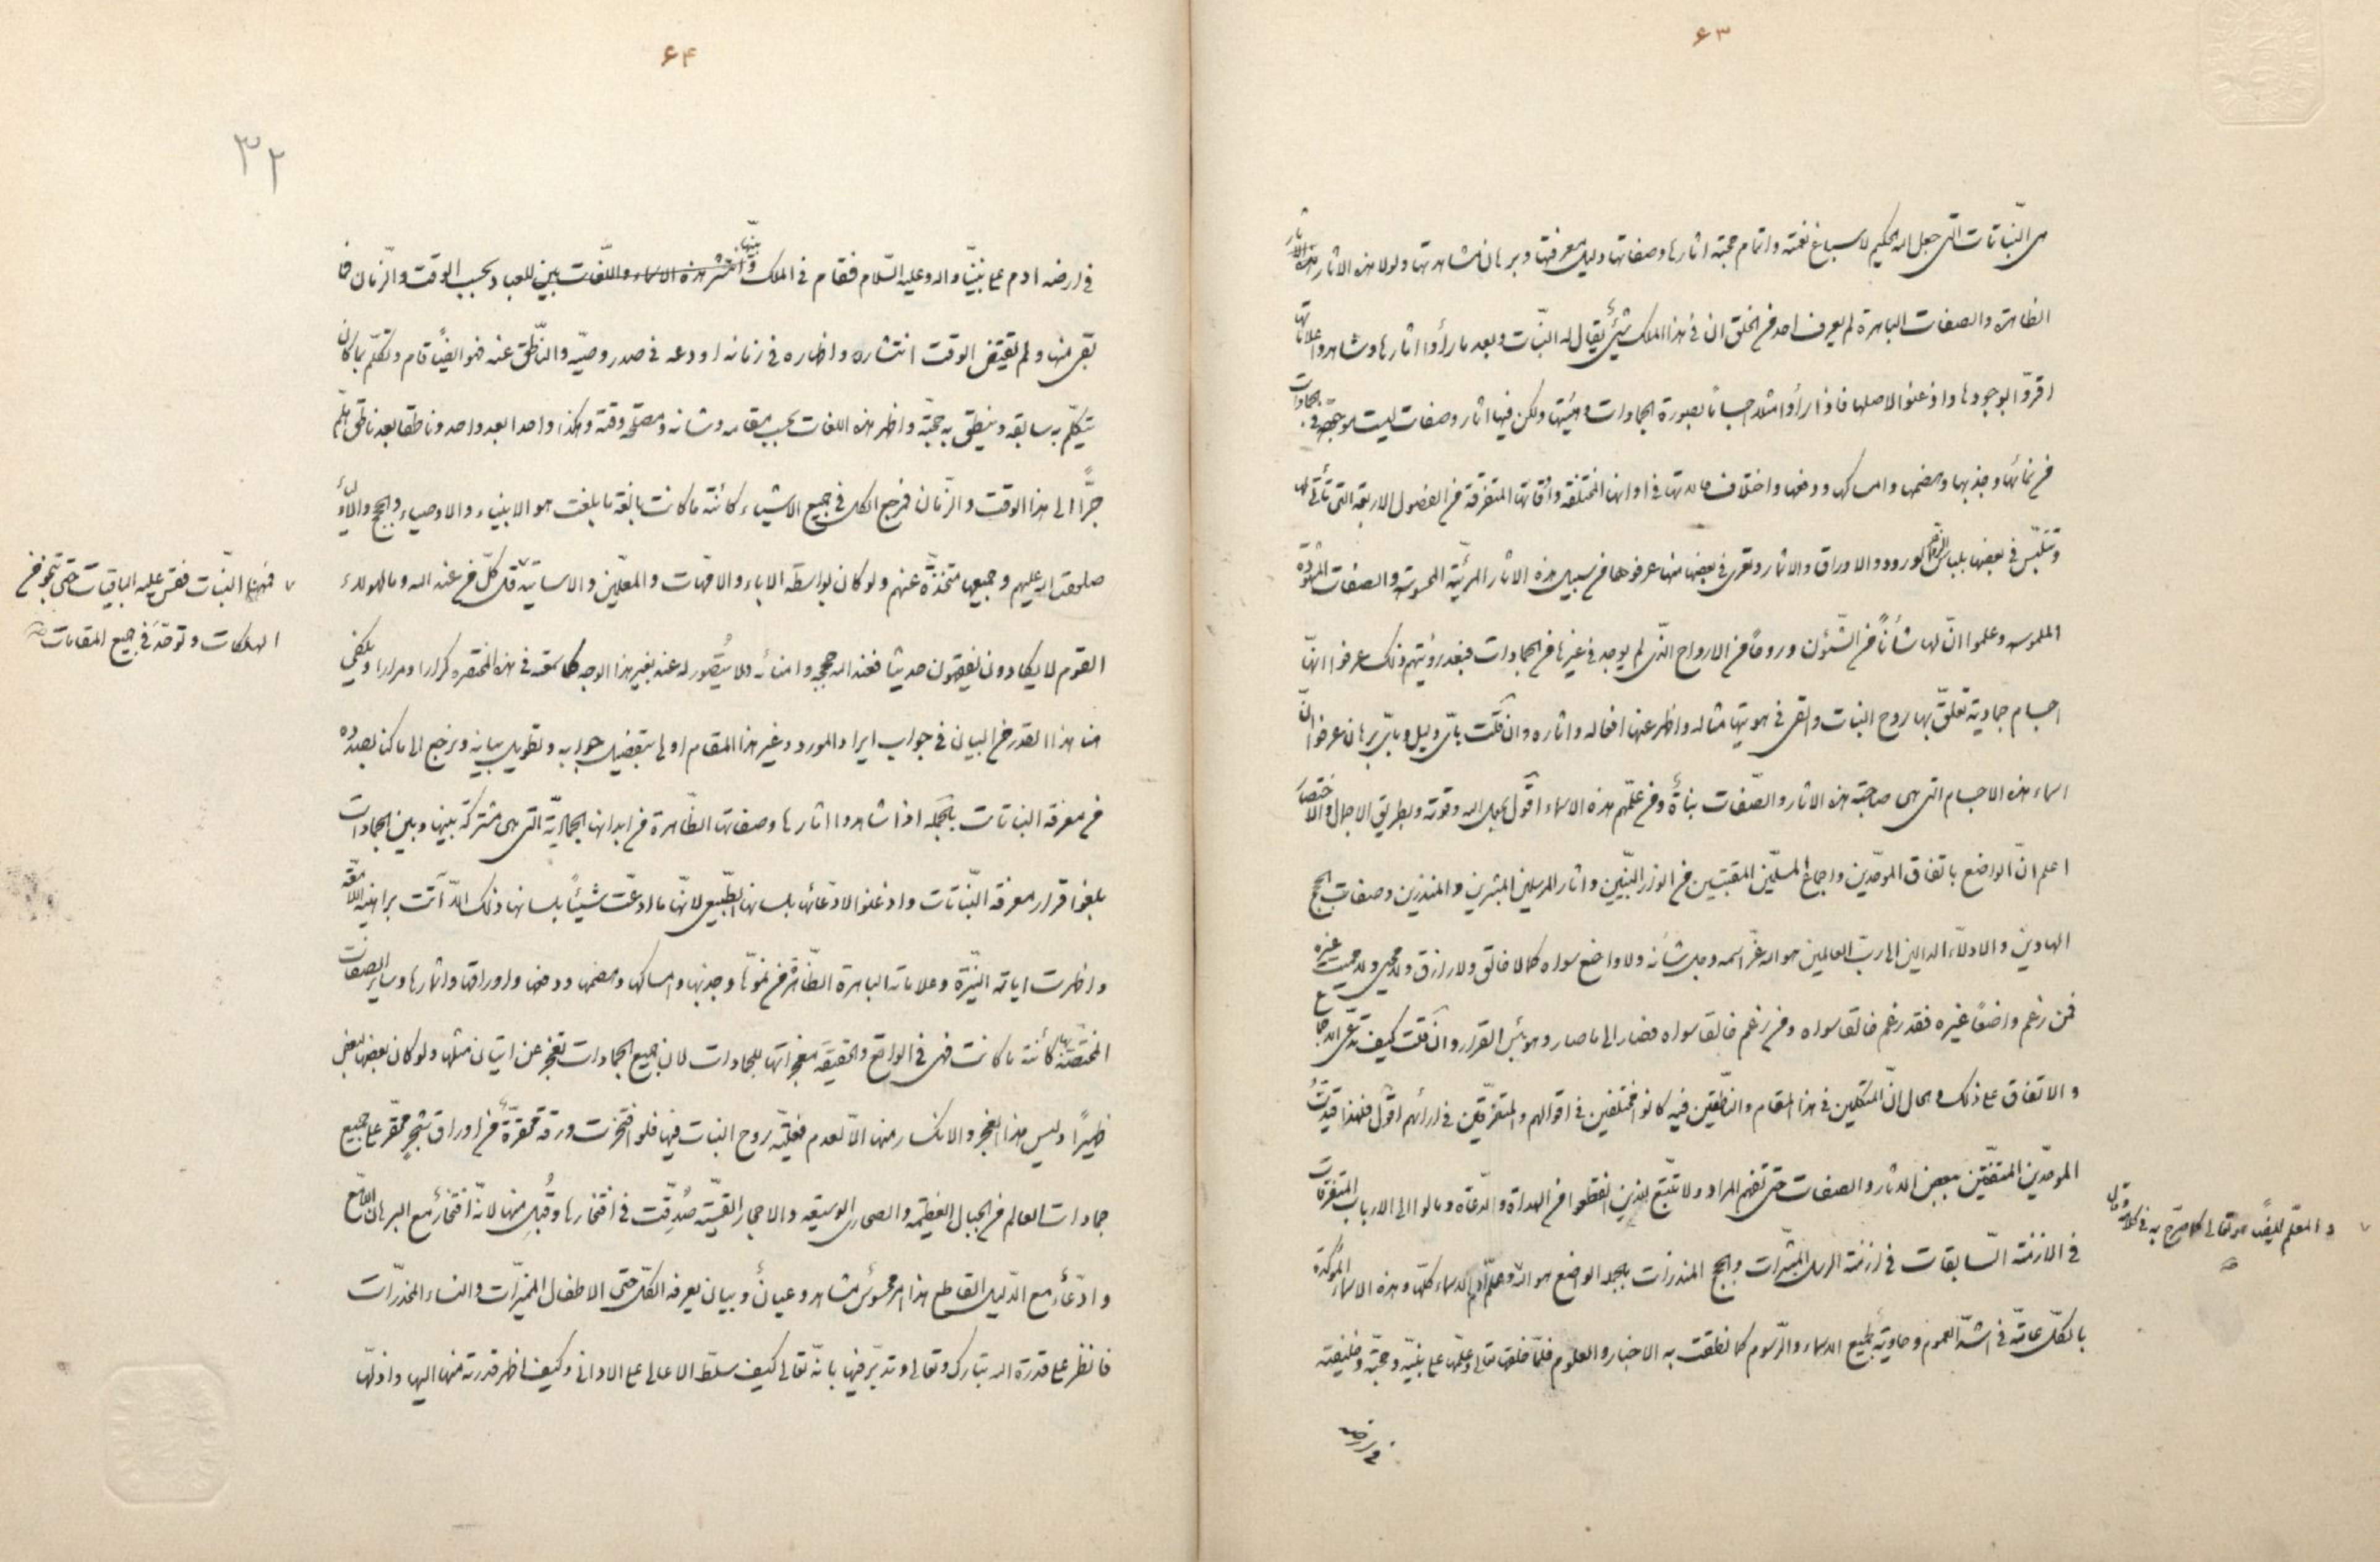 ۶۳
من النّباتات التی جعل الله الحکیم لاسباغ نعمته و اتمام حجّته اثارها و صفاتها دلیل معرفتها و برهان مشاهدتها و لولا هذه الاثار
الظاهرة و الصفات الباهرة لم یعرف احد من الخلق ان فی هذا الملک شیئ یقال له النّبات و بعد ما رأوا اثارها و شاهدوا علاماتها
اقرّوا بوجودها و اذعنوا لاصلها فاذا رأوا مثلا جسمانا بصورة الجمادات و هیئتها ولکن فیها اثار و صفات لیست موجودة فی الجمادات
من نمائها و جذبها و هضمها و امساکها و دفعها و اختلاف حالاتها فی اوانها المختلفة و اوقاتها المتفرقة من الفصول الاربعة التی تأتی لها
و تتلبّس فی بعضها بلباس الورود و الاوراق و الاثمار و تعری فی بعضها منها عرفوها من سبیل هذه الاثار المرئیّة المحسوسة و الصفات المشهودة
الملموسه و علموا انّ لها شأنًا من الشّئون و روحًا من الارواح الّذی لم یوجد فی غیرها من الجمادات فبعد رؤیتهم ذلک عرفوا انّها
اجسام جمادیة تعلّق بها روح النبات و القی فی هویتها مثاله و اظهر عنها افعاله و اثاره و ان قلت بایّ دلیل و بایّ برهان عرفوا انّ
اسماء هذه الاجسام التی هی صاحبة هذه الاثار و الصّفات نباتًا و من علّمهم هذه الاسماء اقول بحول الله و قوته و بطریق الاجمال و الاختصار
اعلم انّ الواضع باتفاق الموحّدین و اجماع المسلّمین المقتبسین من انوار النبیّین و اثار المرسلین المبشرین و المنذرین و صفات الحجج
الهادین و الادلّاء الدالین الی ربّ العالمین هو الله عزّ اسمه و جل شأنه و لا واضع سواه کما لا خالق و لا رازق و لا محیی و لا ممیت غیره
فمن زعم واضعًا غیره فقد زعم خالقا سواه و من زعم خالقا سواه فصار الی ما صار و هو بئس القرار و ان قلت کیف تدّعی الاجماع
و الاتفاق علی ذلک و الحال انّ المتکلّمین فی هذا المقام و الناطقین فیه کانوا مختلفین فی اقوالهم و المتفرّقین فی ارائهم اقول فلهذا قیّدت
الموحّدین المتفقین ببعض الاثار و الصفات حتی تفهم المراد و لا تتّبع الذین انقطعوا من الهداة و الدّعاة و مالوا الی الارباب المتفرقات
فی الازمنة السّابقات فی ازمنة الرسل المبشّرات و الحجج المنذرات بالجملة الواضع هو الله و علّم آدم الاسماء کلّها و هذه الاسماء المؤکدة
بالکلّ عامّة فی اشدّ العموم و حاویة لجمیع الاسماء و الرّسوم کما نطقت به الاخبار و العلوم فلمّا خلقها تعالی و علّمها علی نبیّه و حجّته و خلیفته
و المعلّم ایضًا هو تعالی کما صرّح به فی کلامه و قال
فی ارضه
۶۴
۳۲
فی ارضه ادم علی نبیّنا و اله و علیه السّلام فقام فی الملک و بیّنها للعباد بحسب الوقت و الزّمان فما
بقی منها و لم یقتض الوقت انتشاره و اظهاره فی زمانه اودعه فی صدر وصیّه و النّاطق عنه فهو ایضًا قام و تکلّم بما کان
یتکلّم به سابقه و ینطق به حجّته و اظهر هذه اللغات بحسب مقامه و شانه و مصلحة وقته و هکذا واحدا بعد واحد و ناطقا بعد ناطق هلمّ
جرًّا الی هذا الوقت و الزّمان فمرجع الکل فی جمیع الاشیاء کائنة ما کانت بالغة ما بلغت هو الانبیاء و الاوصیاء و الحجج و الادلّاء
صلوات الله علیهم و جمیعها متّخذة عنهم و لو کان بواسطة الاباء و الامّهات و المعلّمین و الاساتید قل کلّ من عند الله و ما لهولاء
القوم لا یکادون یفقهون حدیثا فعند الله حججه و امنائه و لا یتصّور له عند بغیر هذا الوجه کما سمعته فی هذه المختصره کرارا و مرارا و یکفی
منا هذا القدر من البیان فی جواب ایراد المورد و غیر هذا المقام اولی بتفصیل جوابه و تطویل بیانه و نرجع الی ما کنا بصدده
من معرفة النباتات بالجمله اذا شاهدوا اثارها و صفاتها الظّاهرة من ابدانها الجمادیّة التی هی مشترکة بینها و بین الجمادات
بلغوا قرار معرفة النّباتات و اذعنوا لادّعائها بلسانها الطّبیعی لانّها ما ادّعت شیئًا بلسانها ذلک الّا آتت براهینه اللّامعة
و اظهرت ایاته النیّرة و علاماته الباهرة الظّاهرة من نموّها و جذبها و امساکها و هضمها و دفعها و اوراقها و اثمارها و سایر الصفات
المختصّة بها کائنة ما کانت فهی فی الواقع و الحقیقة معجزاتها للجمادات لان جمیع الجمادات تعجز عن اتیان مثلها و لو کان بعضها لبعض
ظهیرًا و لیس هذا العجز و الانکسار منها الّا لعدم فعلیّة روح النبات فیها فلو افتخرت ورقة محقّرة من اوراق شجر محقّر علی جمیع
جمادات العالم من الجبال العظیمه و الصحاری الوسیعه و الاحجار القسیّة صُدّقت فی افتخارها و قُبِل منها لانّه افتخارٌ مع البرهان اللّامع
و ادّعاء مع الدّلیل القاطع هذا امر محسوس مشاهد و عیان و بیان یعرفه الکلّ حتی الاطفال الممیّزات و النساء المخدّرات
فانظر علی قدرة الله تبارک و تعالی و تدبّر فیها بانّه تعالی کیف سلّط الاعالی علی الادانی و کیف اظهر قدرته منها الیها و اذلّها
فهذا النّبات فقس علیه الباقیات حتی تنجو من
الهلکات و توحّد فی جمیع المقامات